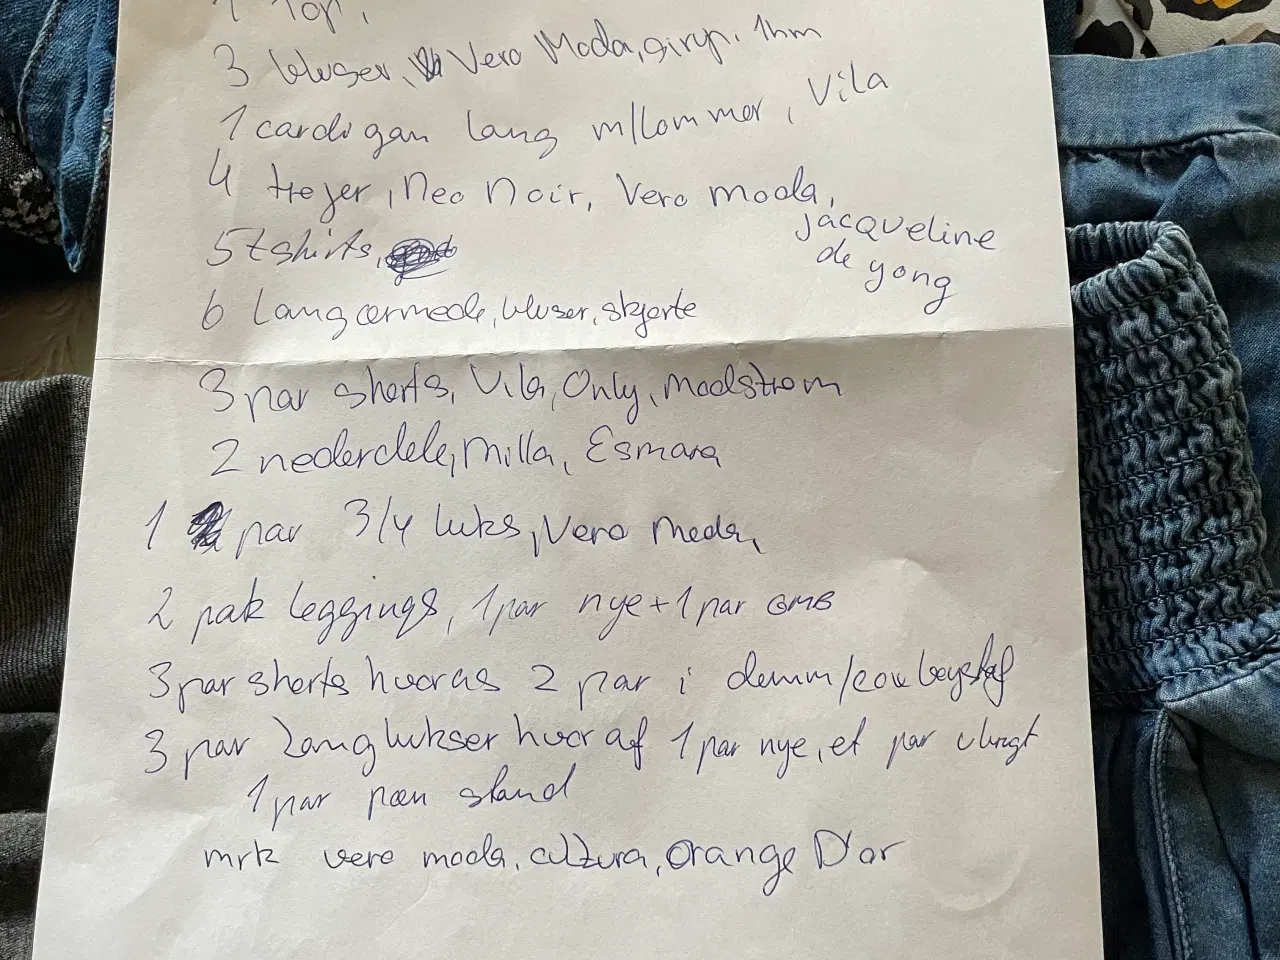 1 Top,
3 bluser, Vero Moda, girup. 1hm
1 cardigan lang m/lommer, Vila
4 trøjer, Neo Noir, Vero moda,
jacqueline
de yong
5 t shirts,
6 Langærmede, bluser, skjorte
3 par shorts, Vila, Only, Modstrøm
2 nederdele, Milla, Esmara
1 par 3/4 buks, Vero Moda,
2 pak leggings, 1 par nye + 1 par GMB
3 par shorts hvoraf 2 par i denim/cowboystof
3 par Langbukser hvoraf 1 par nye, et par brugt
1 par pæn stand
mrk vero moda, cultura, Orange D'or